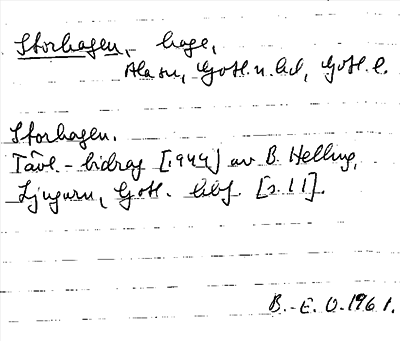 Storhagen, - hage,
Ala sn, Gotl. n. hd, Gotl. l.
Storhagen.
Tävl.-bidrag [1944] av B. Helling,
Ljugarn, Gotl. [s. 11].
B.-E. O. 1961.